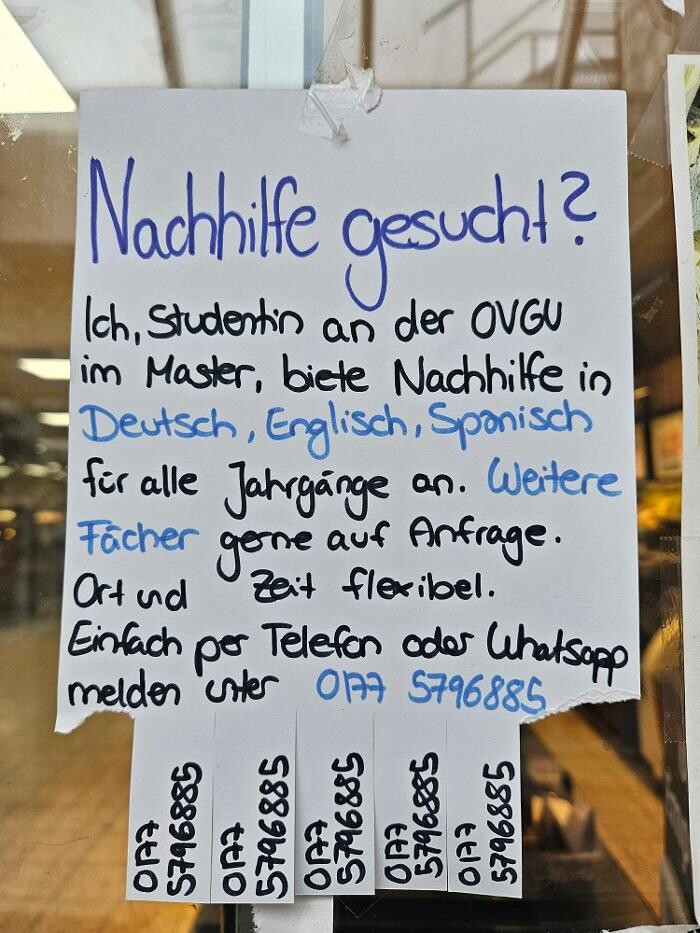 Nachhilfe gesucht?
Ich, Studentin an der OVGU
im Master, biete Nachhilfe in
Deutsch, Englisch, Spanisch
für alle Jahrgänge an. Weitere
Fächer gerne auf Anfrage.
Ort und Zeit flexibel.
Einfach per Telefon oder Whatsapp
melden unter 0177 5796885
0177
5796885
0177
5796885
0177
5796885
0177
5796885
0177
5796885